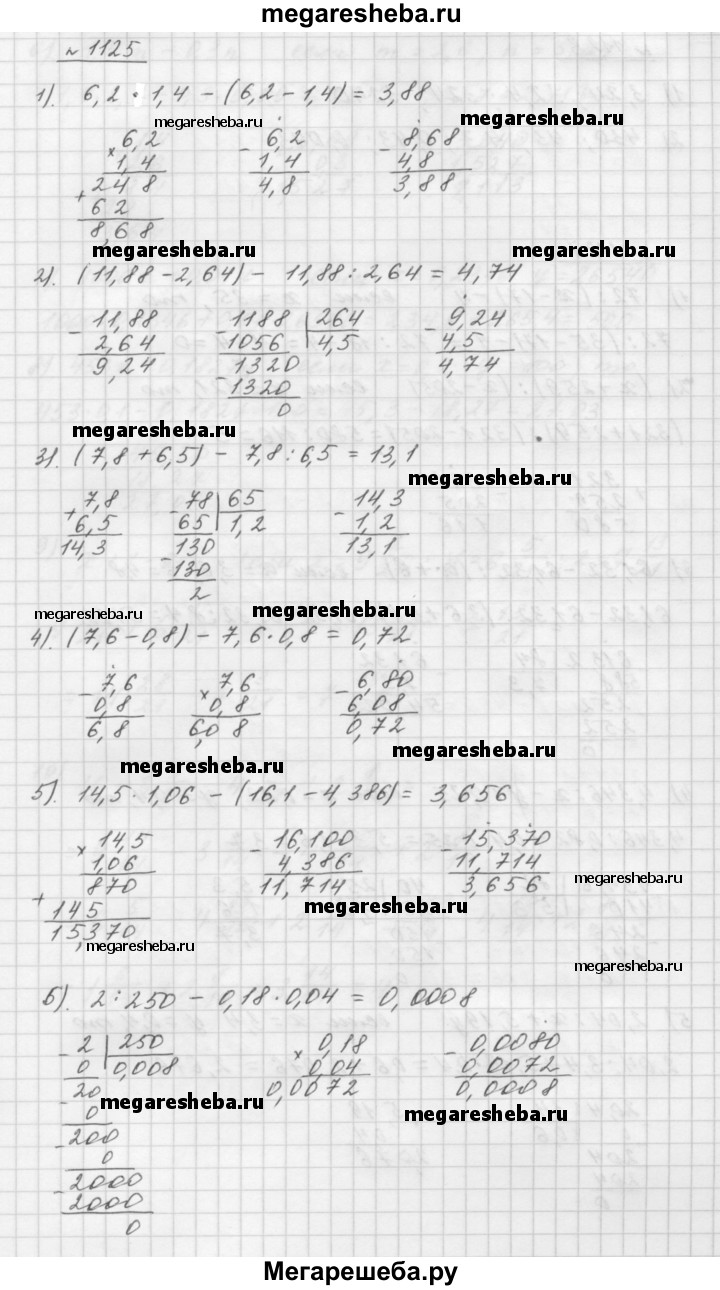 megaresheba.ru
№ 1125
1). 6,2 · 1,4 - (6,2 - 1,4) = 3,88
megaresheba.ru megaresheba.ru
× 6,2 - 6,2 - 8,68
1,4 1,4 4,8
+ 248 4,8 3,88
62
8,68
megaresheba.ru megaresheba.ru
2). (11,88 - 2,64) - 11,88 : 2,64 = 4,74
- 11,88 - 1188 | 264 - 9,24
2,64 1056 4,5 4,5
9,24 1320 4,74
- 1320
0
megaresheba.ru
3). (7,8 + 6,5) - 7,8 : 6,5 = 13,1
megaresheba.ru
+ 7,8 - 78 | 65 - 14,3
6,5 65 1,2 1,2
14,3 130 13,1
- 130
2
megaresheba.ru megaresheba.ru
4). (7,6 - 0,8) - 7,6 · 0,8 = 0,72
- 7,6 × 7,6 - 6,80
0,8 0,8 6,08
6,8 6,08 0,72
megaresheba.ru
megaresheba.ru
5). 14,5 · 1,06 - (16,1 - 4,386) = 3,656
× 14,5 - 16,100 - 15,370
1,06 4,386 11,714
870 11,714 3,656
megaresheba.ru
+ 145
megaresheba.ru
15,370
megaresheba.ru
megaresheba.ru
6). 2 : 250 - 0,18 · 0,04 = 0,0008
- 2 | 250 × 0,18 - 0,0080
0 0,008 0,04 0,0072
20 0,0072 0,0008
- 0
megaresheba.ru megaresheba.ru
- 200
0
- 2000
2000
0
Мегарешеба.ру